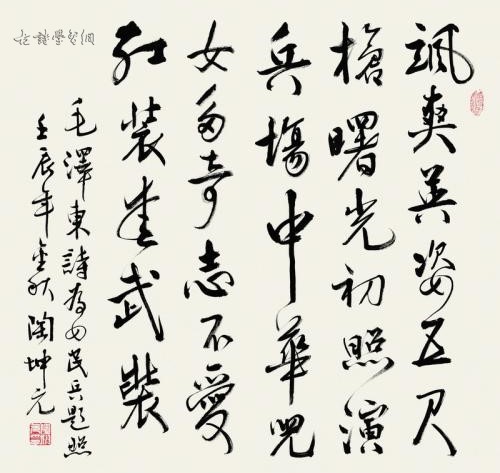 飒爽英姿五尺
槍曙光初照演
兵場中華兒
女多奇志不愛
红装爱武装
毛澤東詩为女民兵題照
壬辰年金秋陶坤元